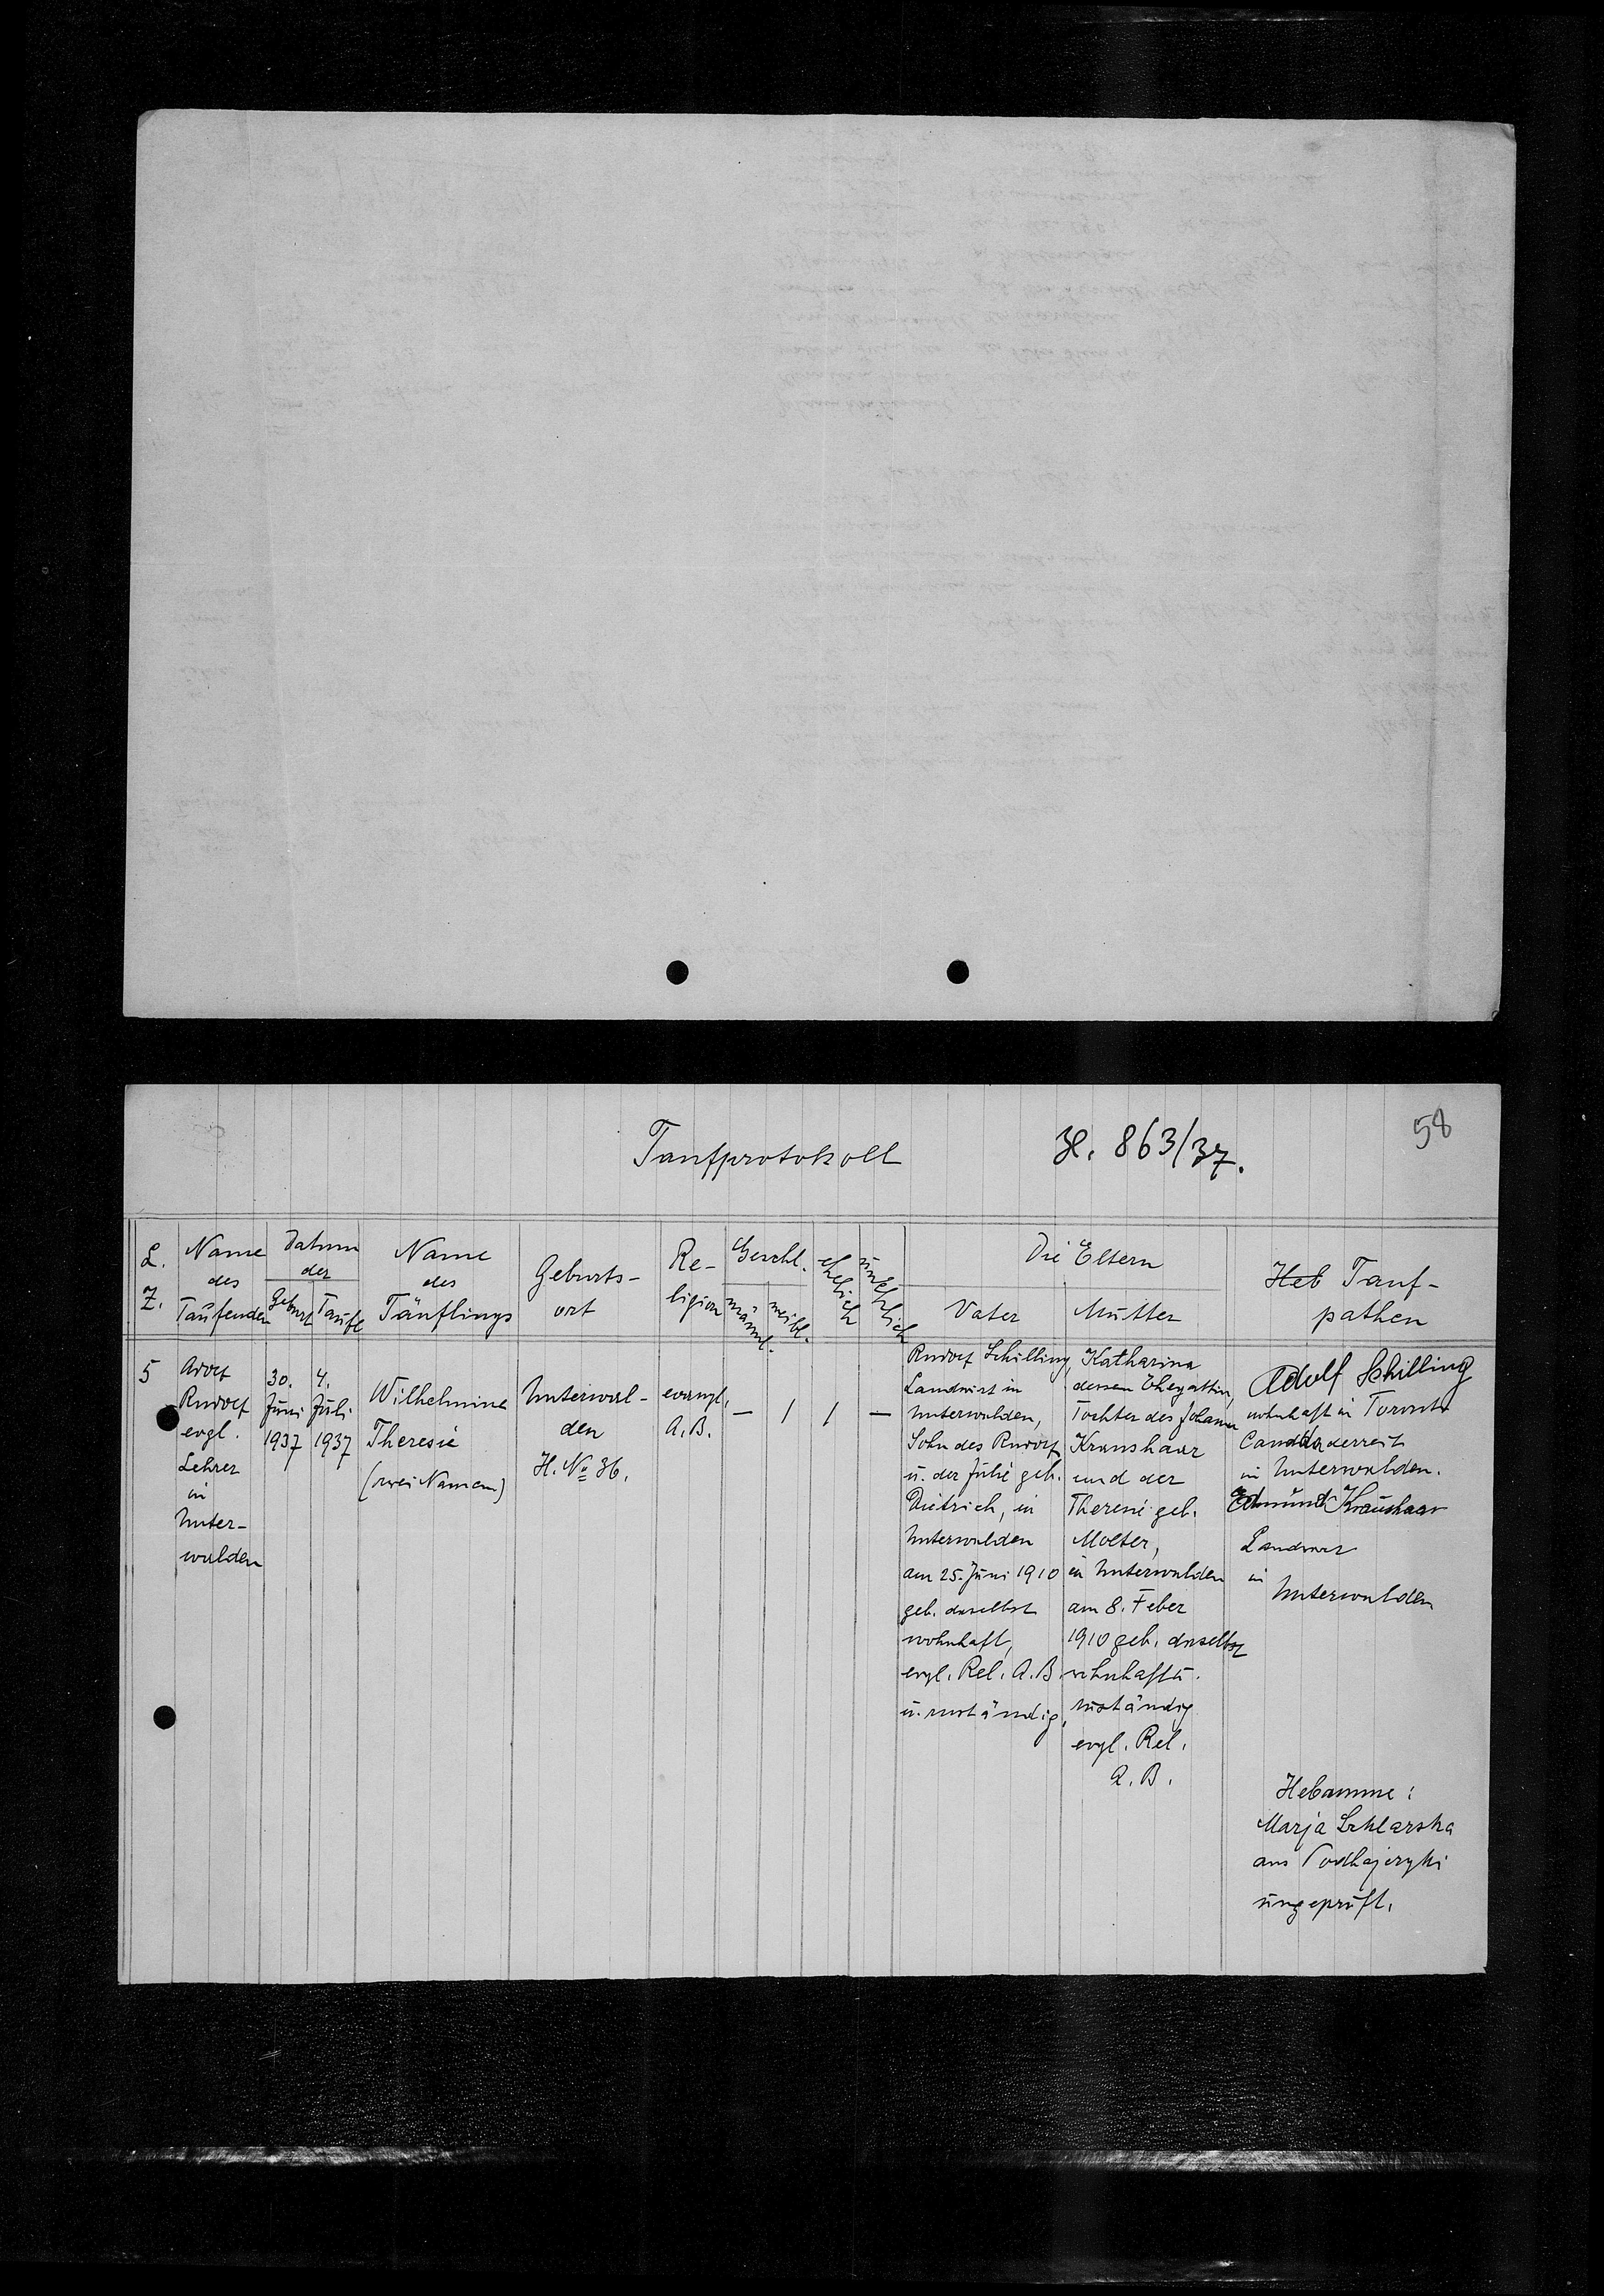 58
Taufprotokoll
Zl. 863/37.
L.
Z.
Name
des
Taufenden
Datum
der
Geburt
Taufe
Name
des
Täuflings
Geburts-
ort
Re-
ligion
Geschl.
männl.
weibl.
ehelich
unehelich
Die Eltern
Vater
Mutter
Heb Tauf-
pathen
5
Adolf
Rudolf
evgl.
Lehrer
in
Unter-
walden
30.
Juni
1937
4.
Juli
1937
Wilhelmine
Theresie
(zwei Namen)
Unterwal-
den
H. No 36.
evangl.
A. B.
—
1
1
—
Rudolf Schilling,
Landwirt in
Unterwalden,
Sohn des Rudolf
u. der Julie geb.
Dietrich, in
Unterwalden
am 25. Juni 1910
geb. daselbst
wohnhaft,
evgl. Rel. A. B.
u. zuständig,
Katharina
dessen Ehegattin,
Tochter des Johann
Kraushaar
und der
Theresie geb.
Molter,
in Unterwalden
am 8. Feber
1910 geb. daselbst
wohnhaft u.
zuständig
evgl. Rel.
A. B.
Adolf Schilling
wohnhaft in Toronto
Canada derzeit
in Unterwalden.
Edmund Kraushaar
Landwirt
in
Unterwalden
Hebamme:
Marja
aus Podhajczyki
ungeprüft.